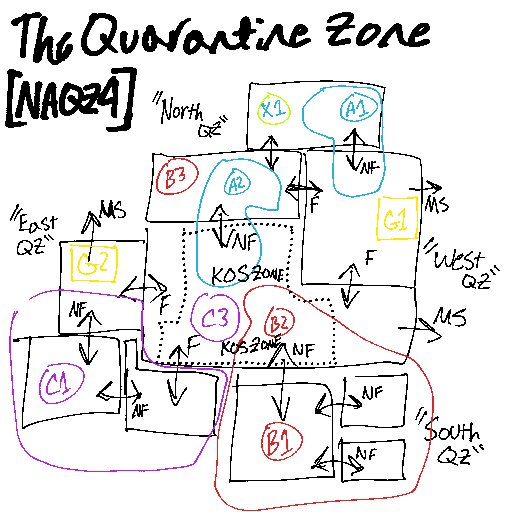 The Quarantine Zone
[NAQZ4]
"North QZ"
X1
A1
NF
B3
A2
F
MS
G1
"East QZ"
MS
NF
KOSZONE
"West QZ"
G2
F
F
C3
B2
MS
NF
F
KOSZONE
NF
C1
NF
NF
B1
"South QZ"
NF